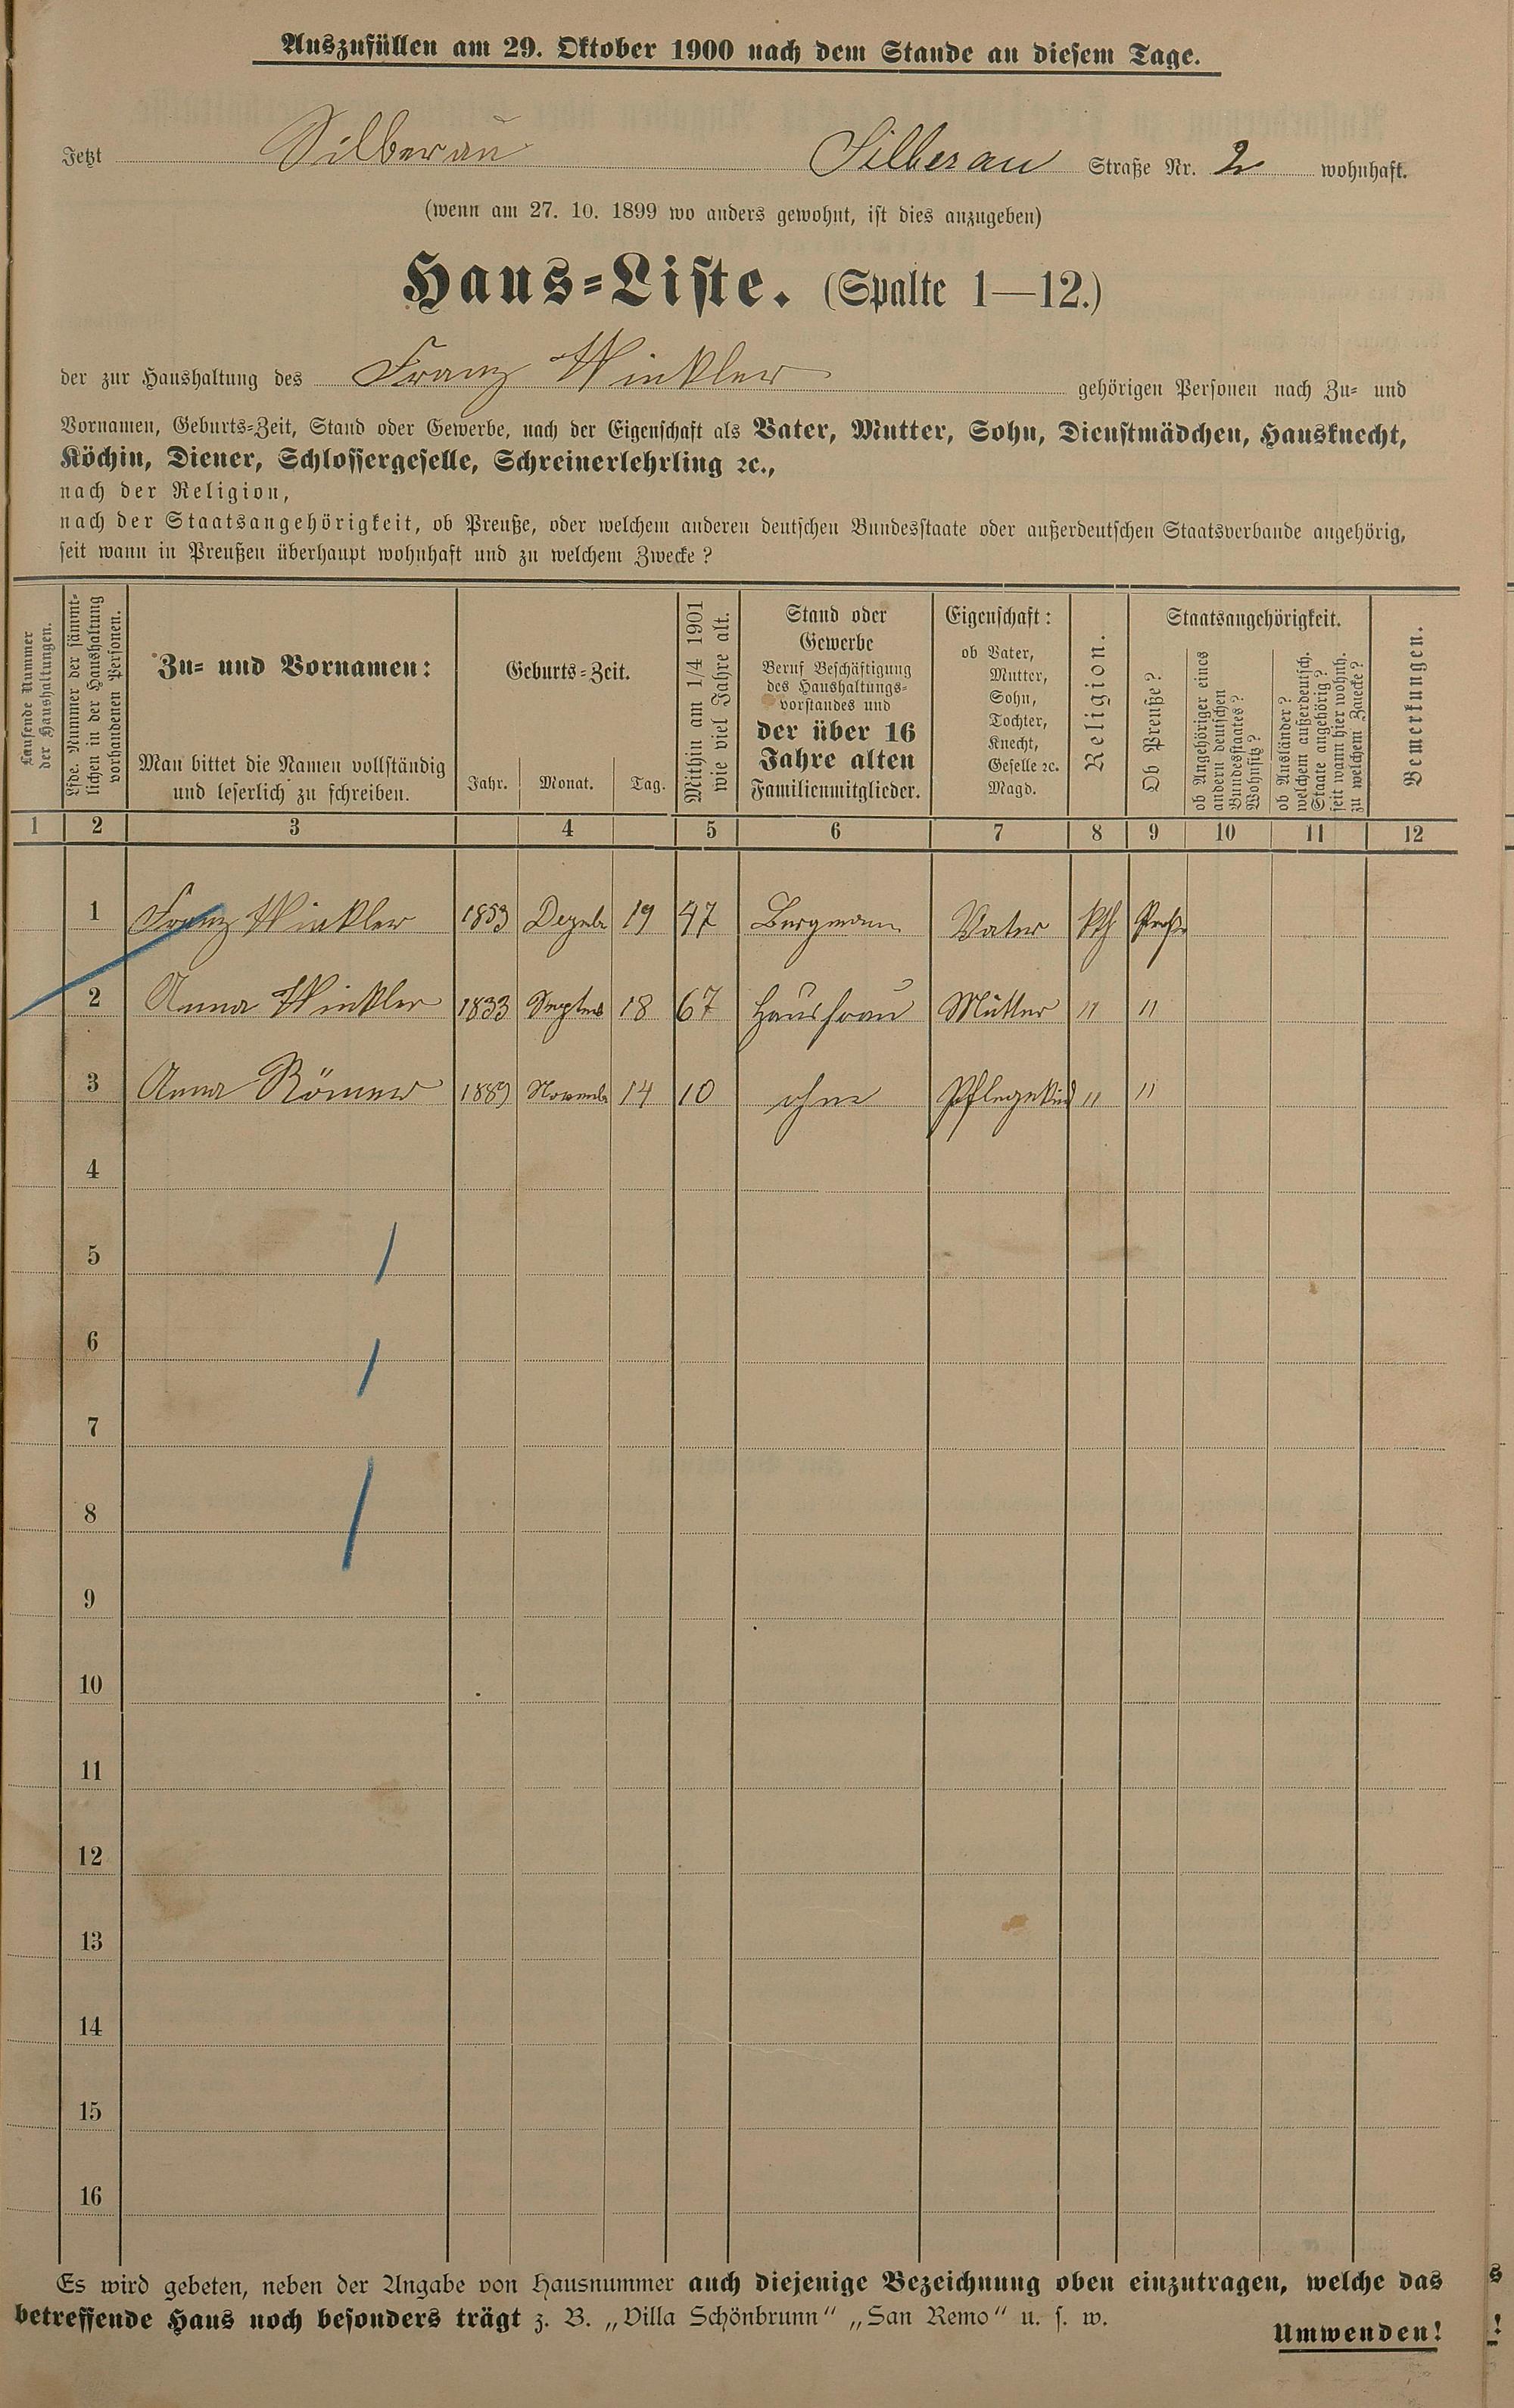 Auszufüllen am 29. Oktober 1900 nach dem Stande an diesem Tage.
Jetzt Silberau Silberau Straße Nr. 2 wohnhaft.
(wenn am 27. 10. 1899 wo anders gewohnt, ist dies anzugeben)
Haus-Liste. (Spalte 1—12.)
der zur Haushaltung des Franz Winkler gehörigen Personen nach Zu- und
Vornamen, Geburts-Zeit, Stand oder Gewerbe, nach der Eigenschaft als Vater, Mutter, Sohn, Dienstmädchen, Hausknecht,
Köchin, Diener, Schlossergeselle, Schreinerlehrling ꝛc.,
nach der Religion,
nach der Staatsangehörigkeit, ob Preuße, oder welchem anderen deutschen Bundesstaate oder außerdeutschen Staatsverbande angehörig,
seit wann in Preußen überhaupt wohnhaft und zu welchem Zwecke?
Laufende Nummer
der Haushaltungen.
Lfde. Nummer der sämmt-
lichen in der Haushaltung
vorhandenen Personen.
Zu- und Vornamen:
Man bittet die Namen vollständig
und leserlich zu schreiben.
Geburts-Zeit.
Jahr. Monat. Tag.
Mithin am 1/4 1901
wie viel Jahre alt.
Stand oder
Gewerbe
Beruf Beschäftigung
des Haushaltungs-
vorstandes und
der über 16
Jahre alten
Familienmitglieder.
Eigenschaft:
ob Vater,
Mutter,
Sohn,
Tochter,
Knecht,
Geselle ꝛc.
Magd.
Religion.
Staatsangehörigkeit.
Ob Preuße?
ob Angehöriger eines
andern deutschen
Bundesstaates?
Wohnsitz?
ob Ausländer?
welchem außerdeutsch.
Staate angehörig?
seit wann hier wohnh.
zu welchem Zwecke?
Bemerkungen.
1 2 3 4 5 6 7 8 9 10 11 12
1 Franz Winkler 1853 Dezebr 19 47 Bergmann Vater kth Preuße
2 Anna Winkler 1833 Septbr 18 67 Hausfrau Mutter " "
3 Anna Römer 1889 Novemb 14 10 ohne Pflegekind " "
4
5
6
7
8
9
10
11
12
13
14
15
16
Es wird gebeten, neben der Angabe von Hausnummer auch diejenige Bezeichnung oben einzutragen, welche das
betreffende Haus noch besonders trägt z. B. „Villa Schönbrunn“ „San Remo“ u. s. w.
Umwenden!